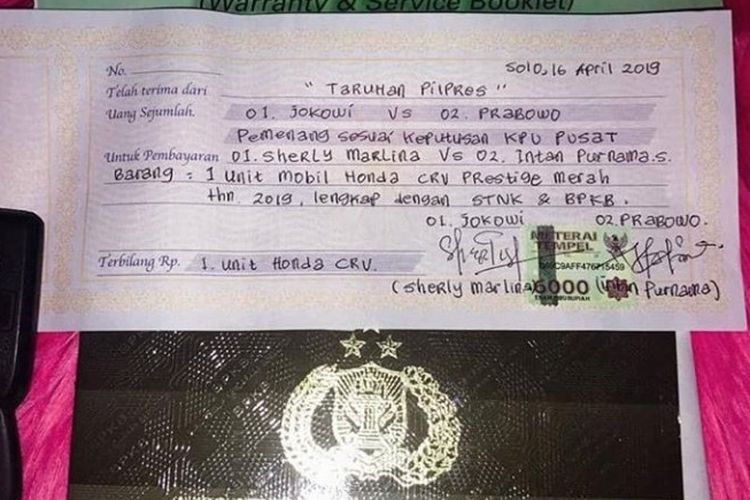 (Warranty & Service Booklet)
No.
Solo, 16 April 2019
Telah terima dari "Taruhan Pilpres"
Uang Sejumlah. 01. Jokowi Vs 02. Prabowo
Pemenang sesuai Keputusan KPU Pusat
Untuk Pembayaran 01. Sherly Marlina Vs 02. Intan Purnama.s.
Barang : 1 Unit mobil Honda CRV Prestige Merah
thn. 2019, lengkap dengan STNK & BPKB.
01. Jokowi 02. Prabowo.
METERAI
TEMPEL
Terbilang Rp. 1. Unit Honda CRV.
6000
ENAM RIBU RUPIAH
(Sherly Marlina) (Intan Purnama)